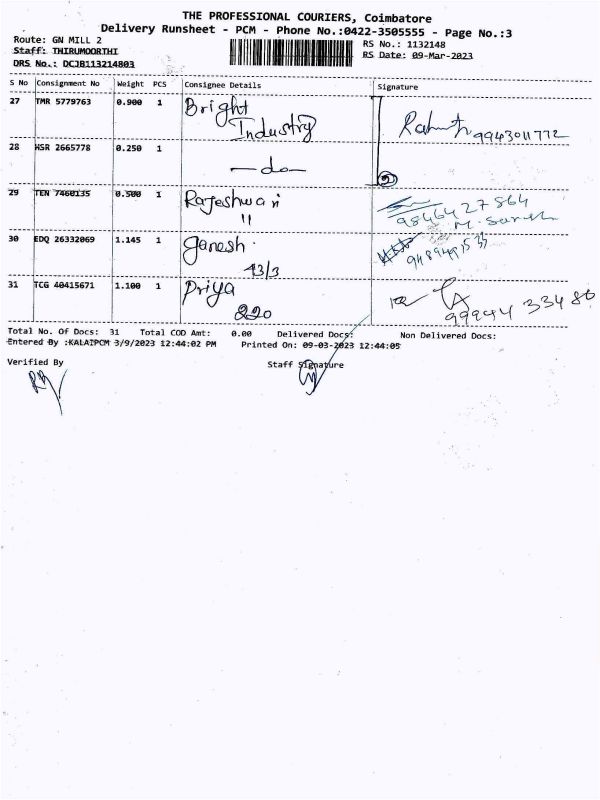 THE PROFESSIONAL COURIERS, Coimbatore
Delivery Runsheet - PCM - Phone No.:0422-3505555 - Page No.:3
Route: GN MILL 2
RS No.: 1132148
Staff: THIRUMOORTHI
RS Date: 09-Mar-2023
DRS No.: DCJB113214803
S No Consignment No Weight PCS Consignee Details Signature
27 TMR 5779763 0.900 1 Bright Industry 9943011772
28 HSR 2665778 0.250 1 —do— 2
29 TEN 7460135 0.500 1 Rajeshwari 11 9846427864
30 EDQ 26332069 1.145 1 Ganesh. 43/3
31 TCG 40415671 1.100 1 Priya 220 99944 33486
Total No. Of Docs: 31 Total COD Amt: 0.00 Delivered Docs: Non Delivered Docs:
Entered By :KALAIPCM 3/9/2023 12:44:02 PM Printed On: 09-03-2023 12:44:05
Verified By
Staff Signature